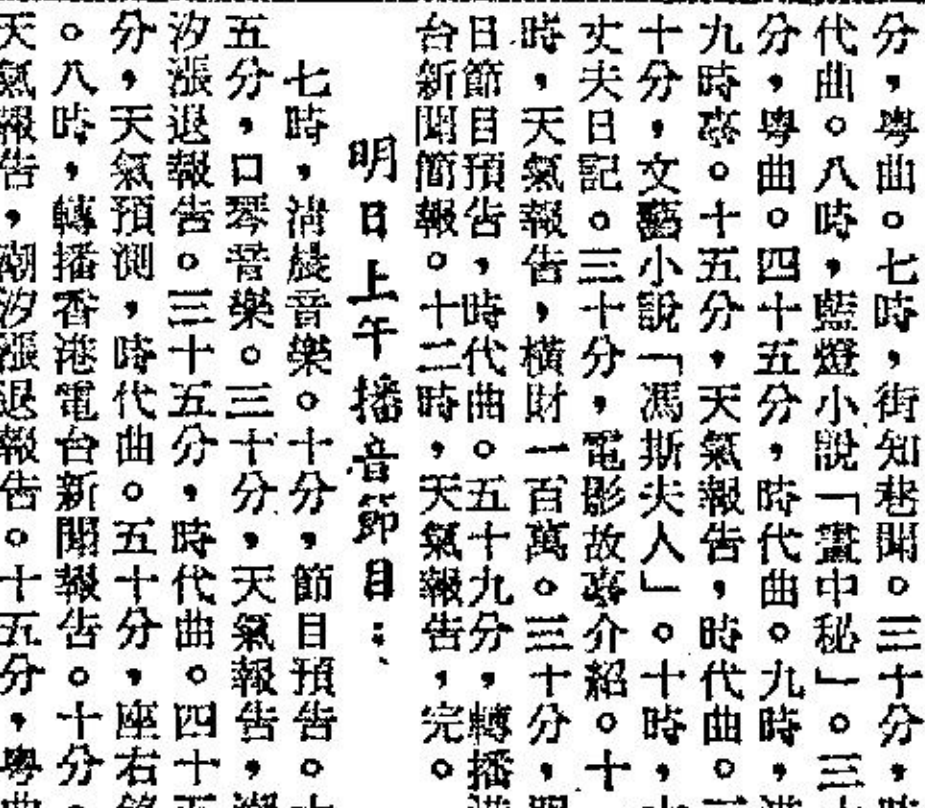 分，粵曲。七時，街知巷聞。三十分，
代曲。八時，藍燈小說「畫中秘」。三
分，粵曲。四十五分，時代曲。九時，
九時事。十五分，天氣報告，時代曲。三
十分，文藝小說「馮斯夫人」。十時，
丈夫日記。三十分，電影故事介紹。十
時，天氣報告，橫財一百萬。三十分，明
日節目預告，時代曲。五十九分，轉播港
台新聞簡報。十二時，天氣報告，完。
明日上午播音節目：
七時，清晨音樂。十分，節目預告。十
五分，口琴音樂。三十分，天氣報告，潮
汐漲退報告。三十五分，時代曲。四十五
分，天氣預測，時代曲。五十分，座右銘
。八時，轉播香港電台新聞報告。十分
天氣報告，潮汐漲退報告。十五分，粵曲